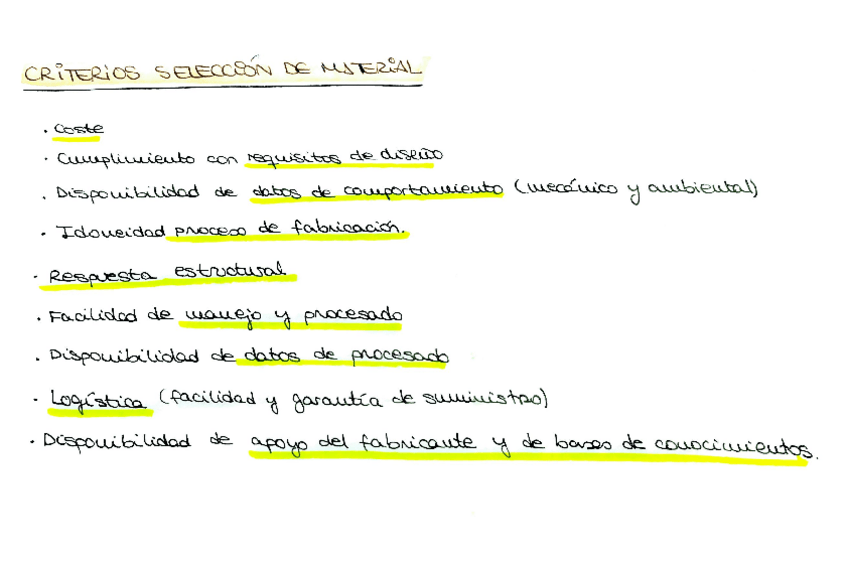 CRITERIOS SELECCIÓN DE MATERIAL
· Coste
· Cumplimiento con requisitos de diseño
· Disponibilidad de datos de comportamiento (mecánico y ambiental)
· Idoneidad proceso de fabricación.
· Respuesta estructural
· Facilidad de manejo y procesado
· Disponibilidad de datos de procesado
· Logística (facilidad y garantía de suministro)
· Disponibilidad de apoyo del fabricante y de bases de conocimientos.